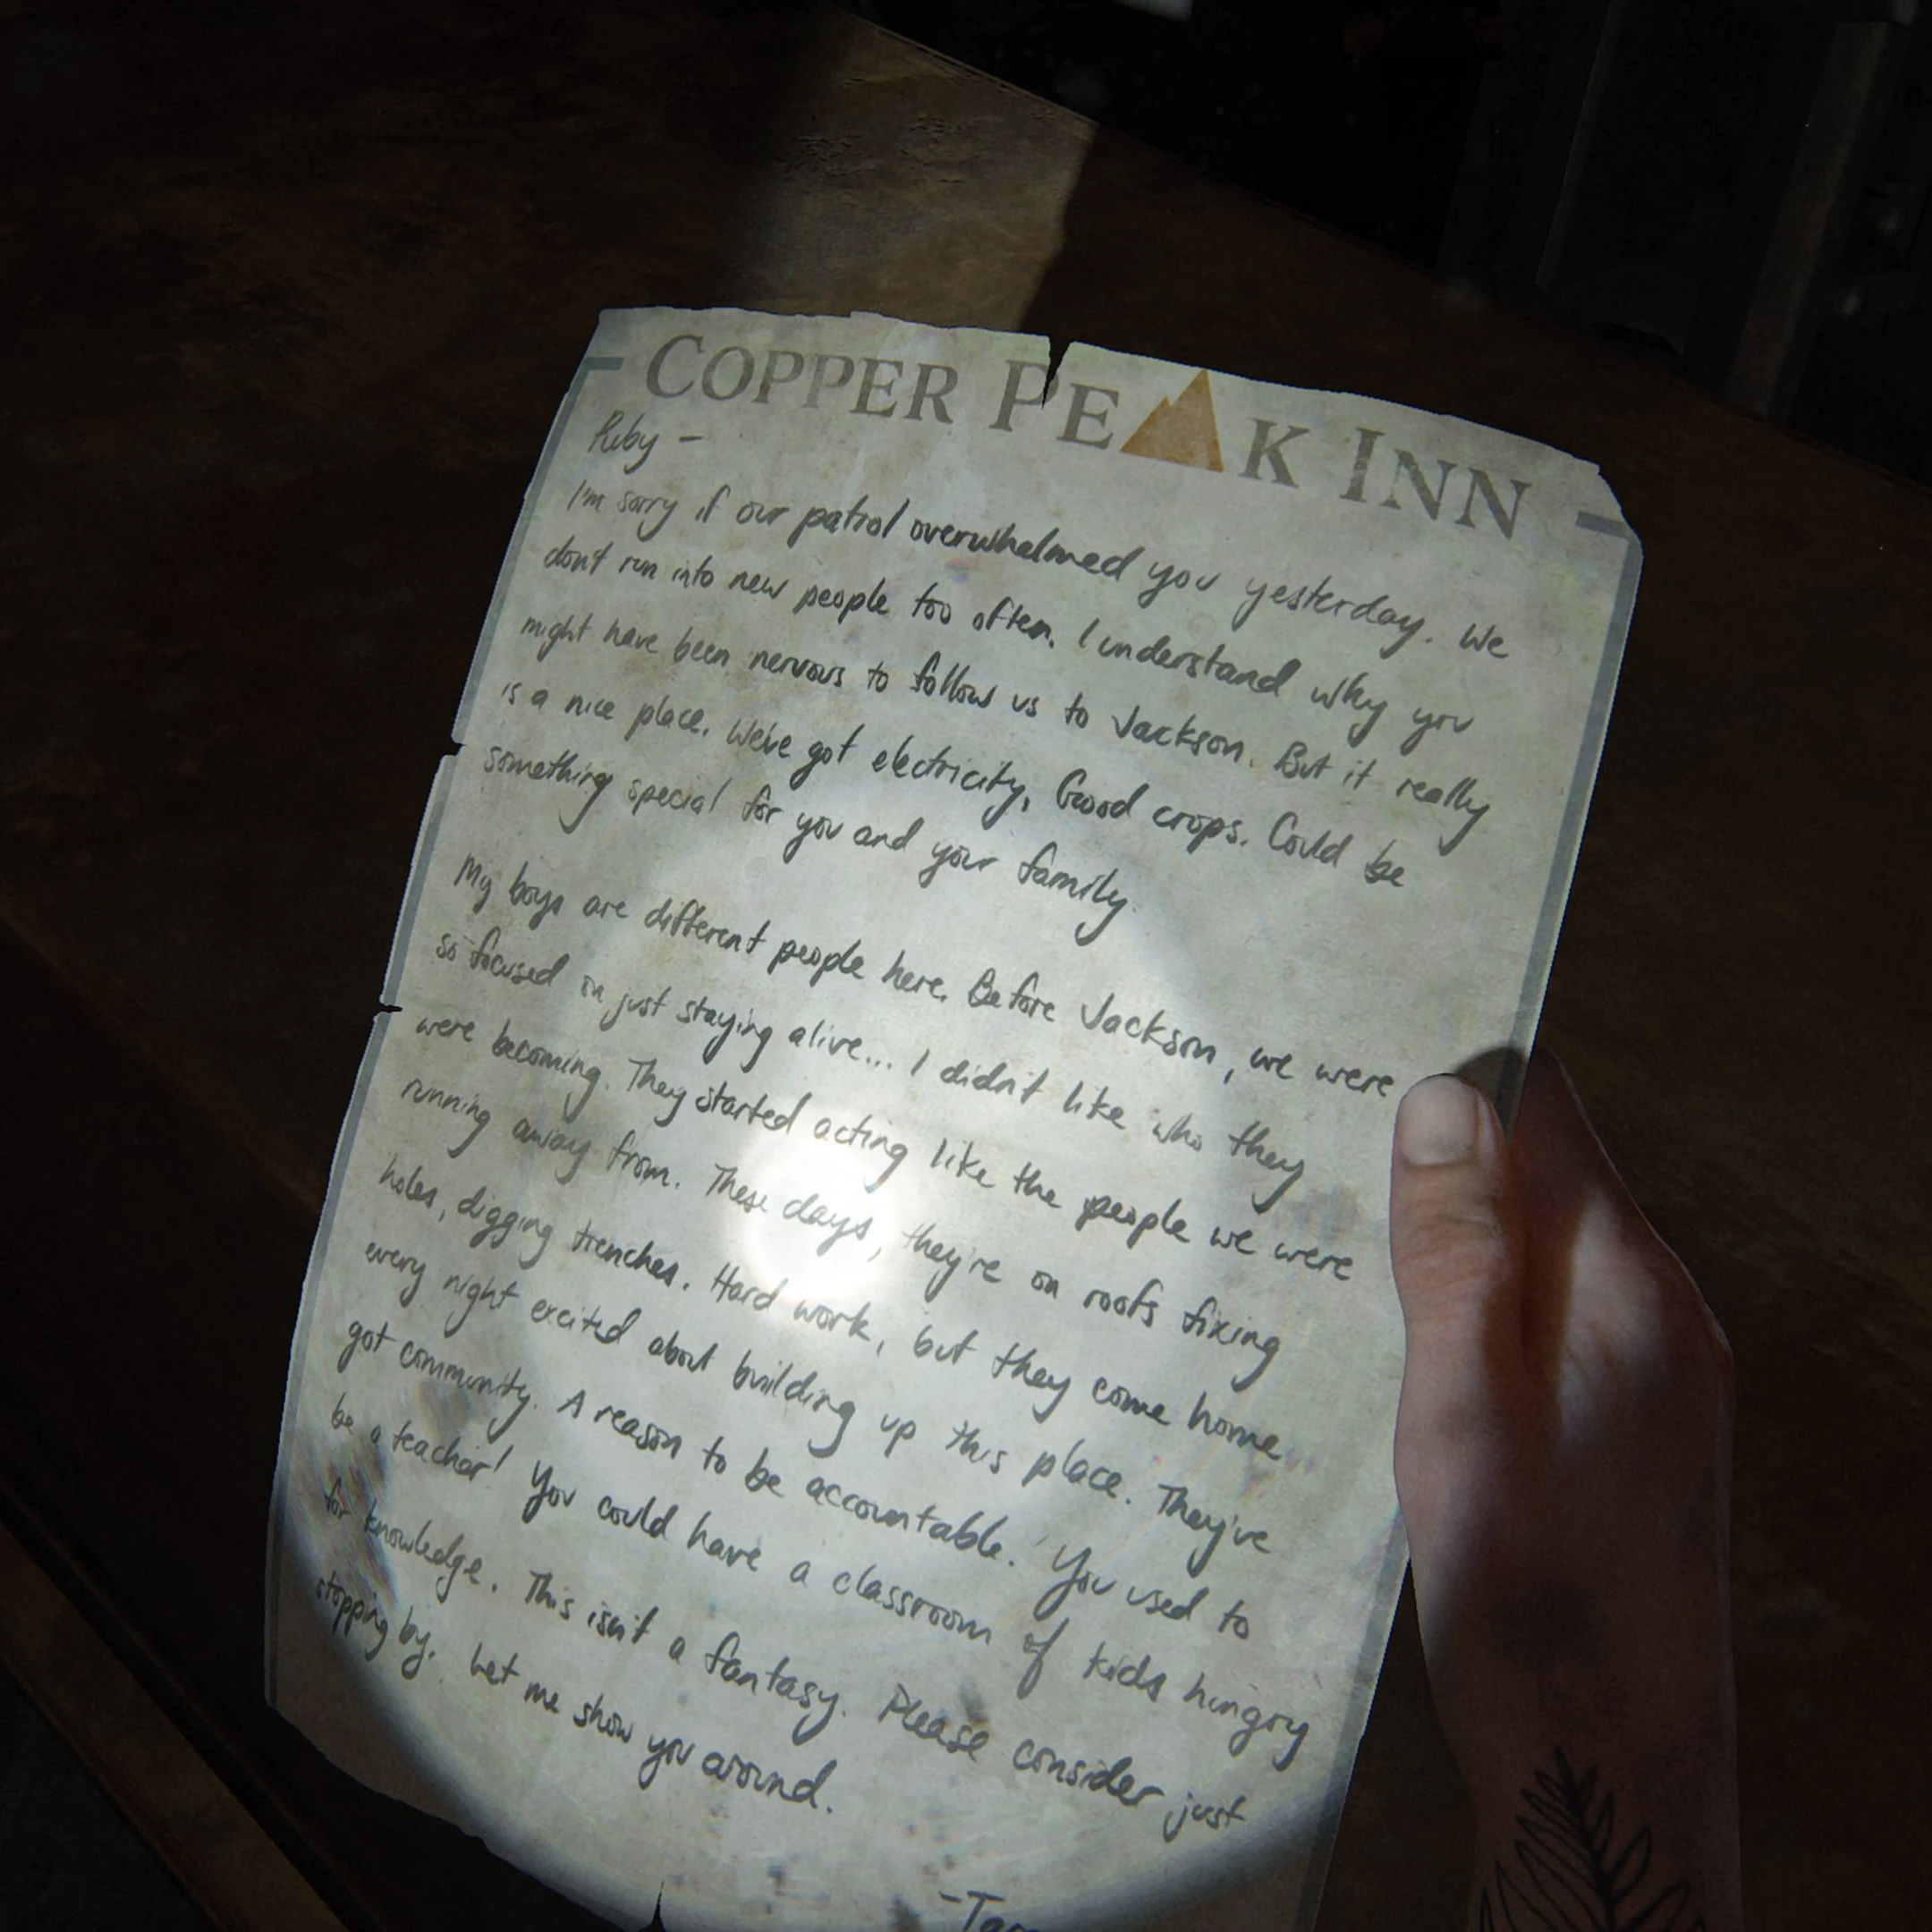 COPPER PEAK INN
Ruby -
I'm sorry if our patrol overwhelmed you yesterday. We
don't run into new people too often. I understand why you
might have been nervous to follow us to Jackson. But it really
is a nice place. We've got electricity. Good crops. Could be
something special for you and your family.
My boys are different people here. Before Jackson, we were
so focused on just staying alive... I didn't like who they
were becoming. They started acting like the people we were
running away from. These days, they're on roofs fixing
holes, digging trenches. Hard work, but they come home
every night excited about building up this place. They've
got community. A reason to be accountable. You used to
be a teacher! You could have a classroom of kids hungry
for knowledge. This isn't a fantasy. Please consider just
stopping by. Let me show you around.